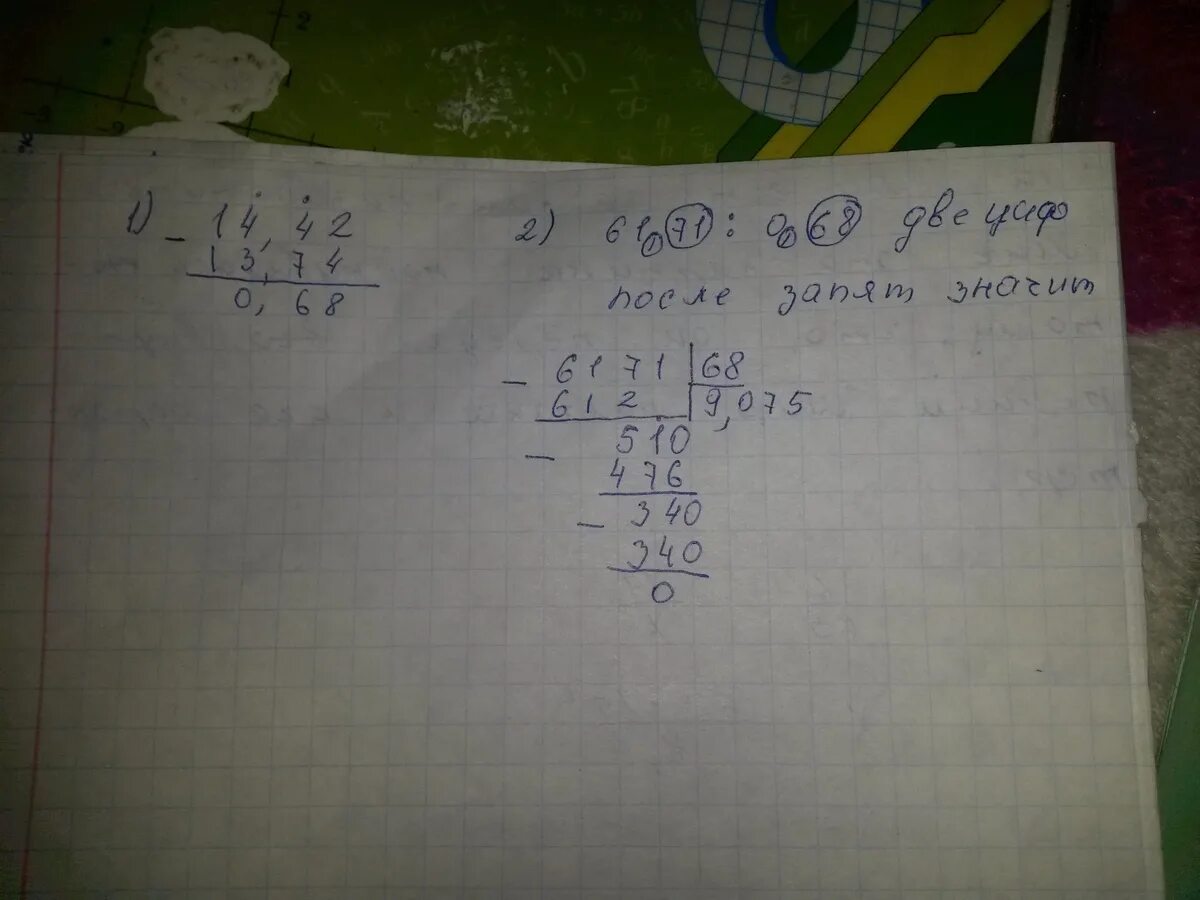 1) - 14,42
13,74
0,68
2) 61,71 : 0,68 две цифр
после запят значит
- 6171 | 68
612 | 9,075
- 510
476
- 340
340
0